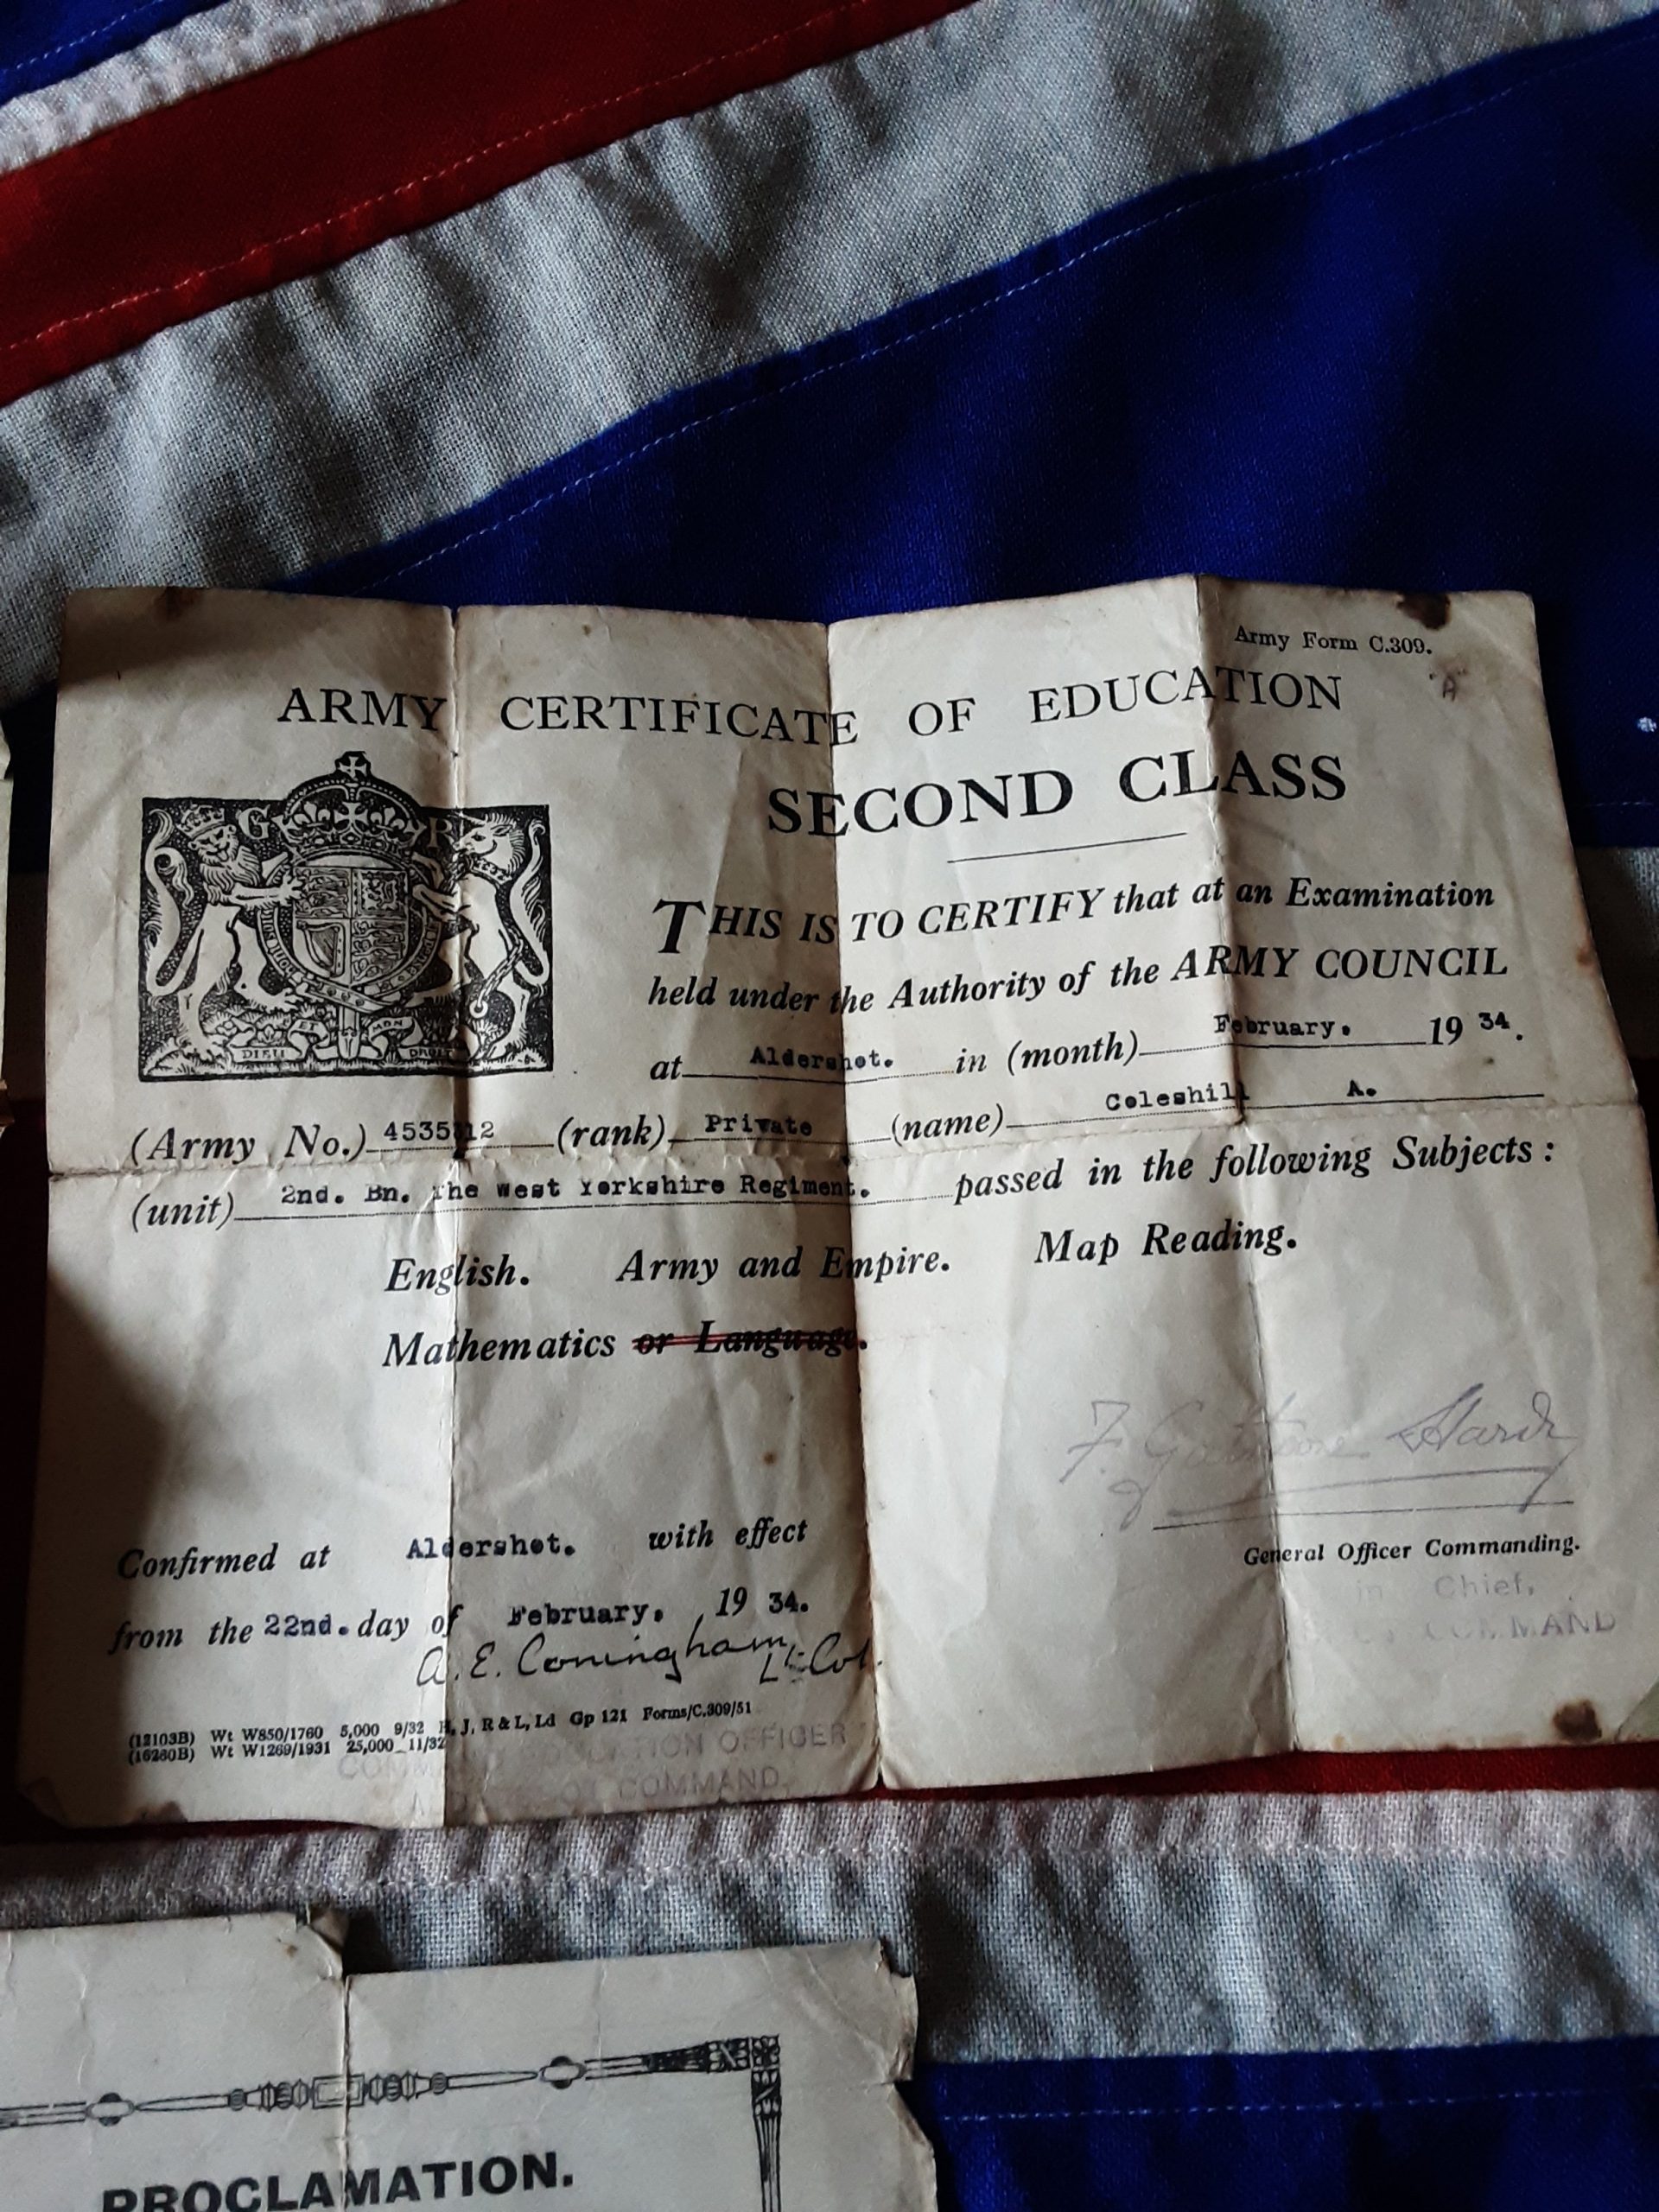 Army Form C.309.
"A"
ARMY CERTIFICATE OF EDUCATION
SECOND CLASS
G R
THIS IS TO CERTIFY that at an Examination
held under the Authority of the ARMY COUNCIL
at Aldershot. in (month) February. 19 34.
DIEU ET MON DROIT
(Army No.) (rank) Private (name) Coleshill A.
(unit) 2nd. Bn. The West Yorkshire Regiment. passed in the following Subjects:
English. Army and Empire. Map Reading.
Mathematics or Language.
F.
General Officer Commanding.
in Chief,
COMMAND
Confirmed at Aldershot. with effect
from the 22nd. day of February, 19 34.
A. E. Coningham Lt. Col.
(12103B) Wt W850/1760 5,000 9/32 H, J, R & L, Ld Gp 121 Forms/C.309/51
(16280B) Wt W1269/1931 25,000 11/32
EDUCATION OFFICER
COMMAND,
PROCLAMATION.